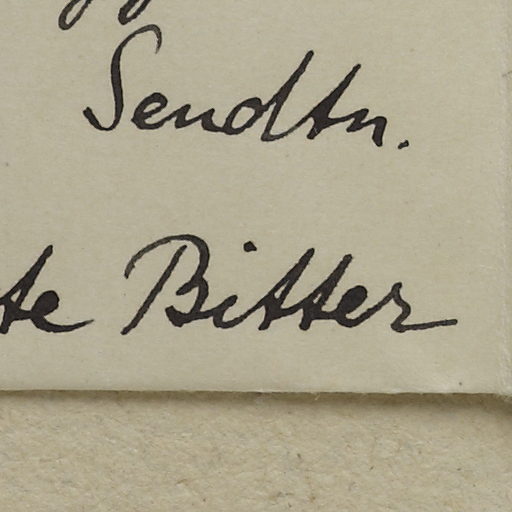 Sendtn.
te Bitter